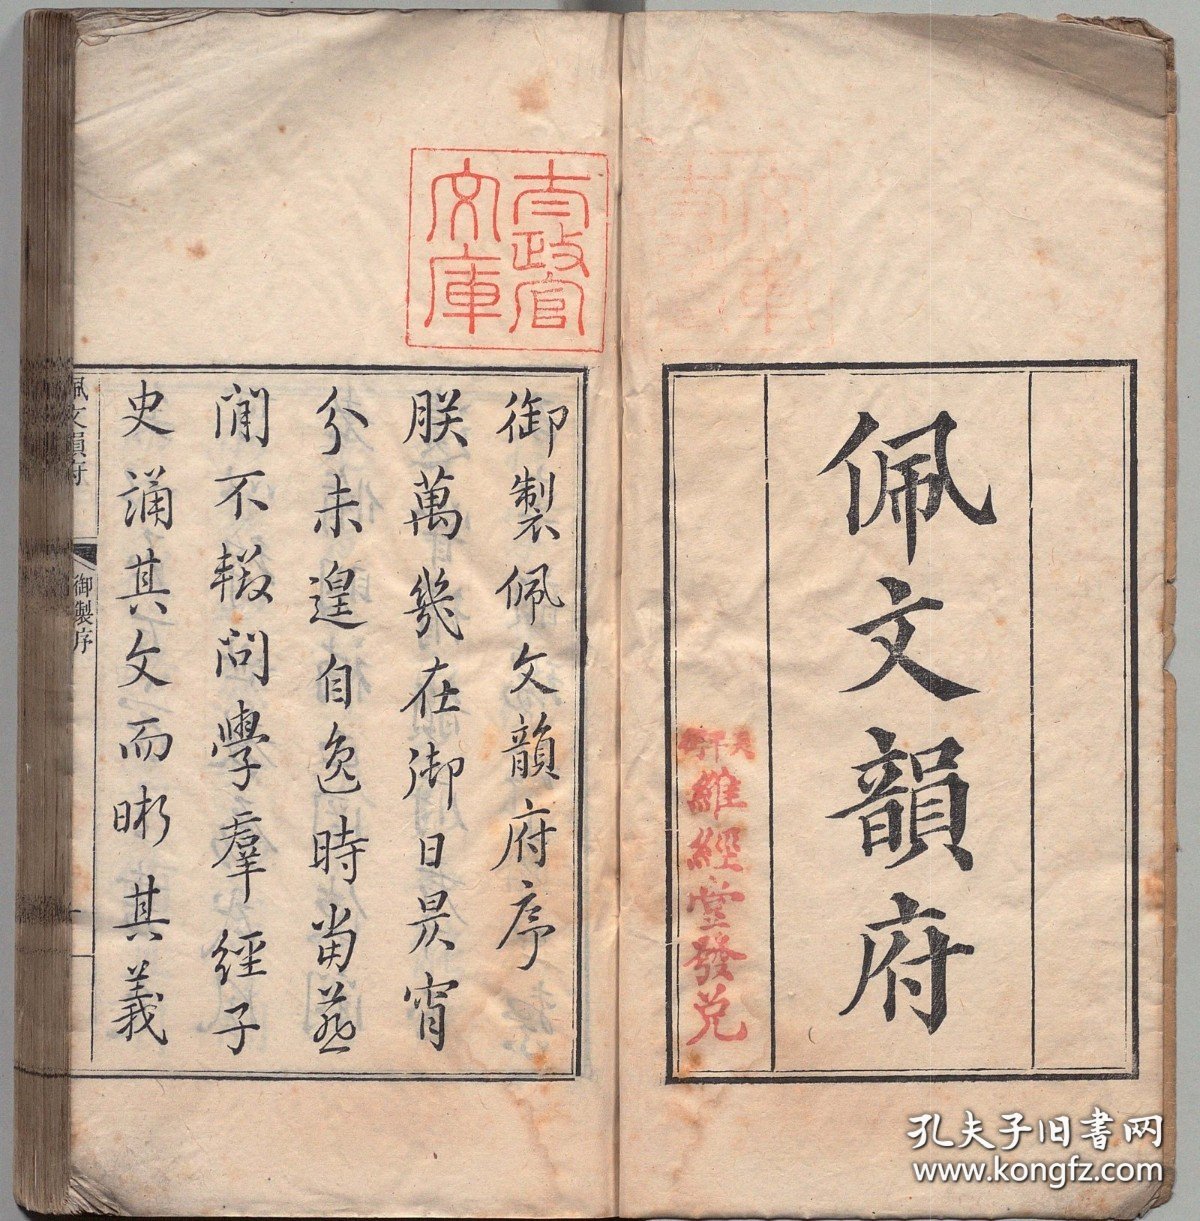 佩文韻府
維經堂發兌
太政官
文庫
御製佩文韻府序
朕萬幾在御日昃宵
分未遑自逸時當燕
閒不輟問學羣經子
史誦其文而晰其義
佩文韻府
御製序
一
孔夫子旧書网
www.kongfz.com